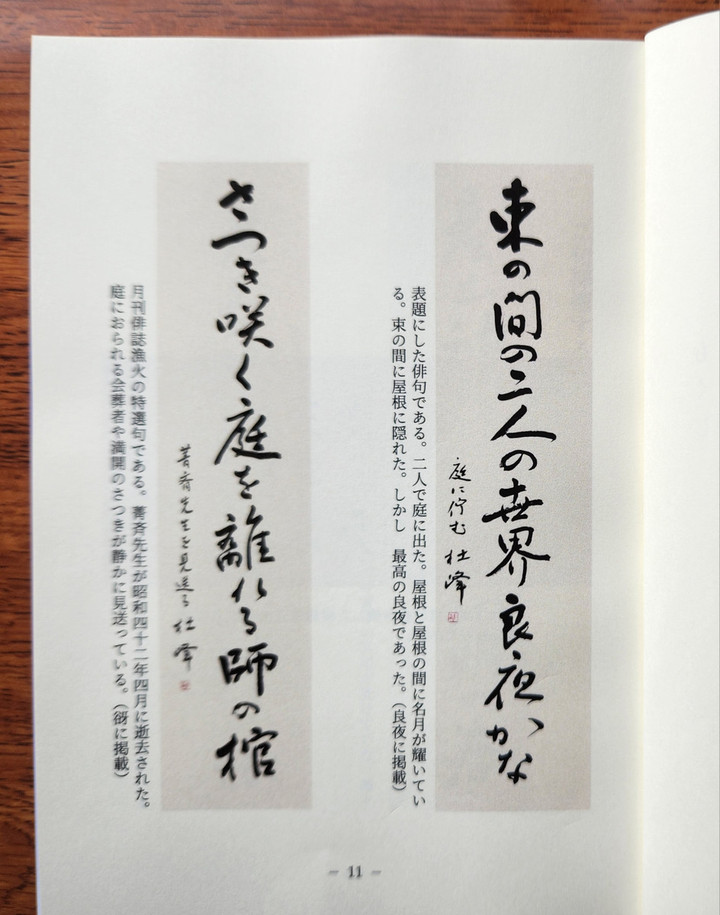 束の間の二人の世界良夜かな
庭に佇む 杜峰
表題にした俳句である。二人で庭に出た。屋根と屋根の間に名月が耀いてい
る。束の間に屋根に隠れた。しかし　最高の良夜であった。（良夜に掲載）
さつき咲く庭を離れる師の棺
菁斉先生を見送る 杜峰
月刊俳誌漁火の特選句である。菁斉先生が昭和四十二年四月に逝去された。
庭におられる会葬者や満開のさつきが静かに見送っている。（谺に掲載）
- 11 -